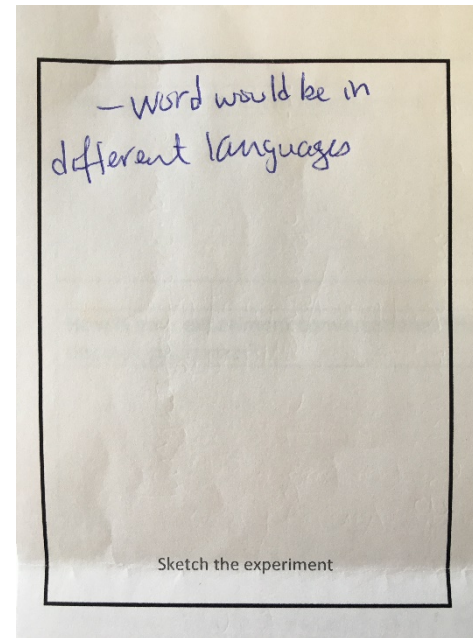 - Word would be in
different languages
Sketch the experiment